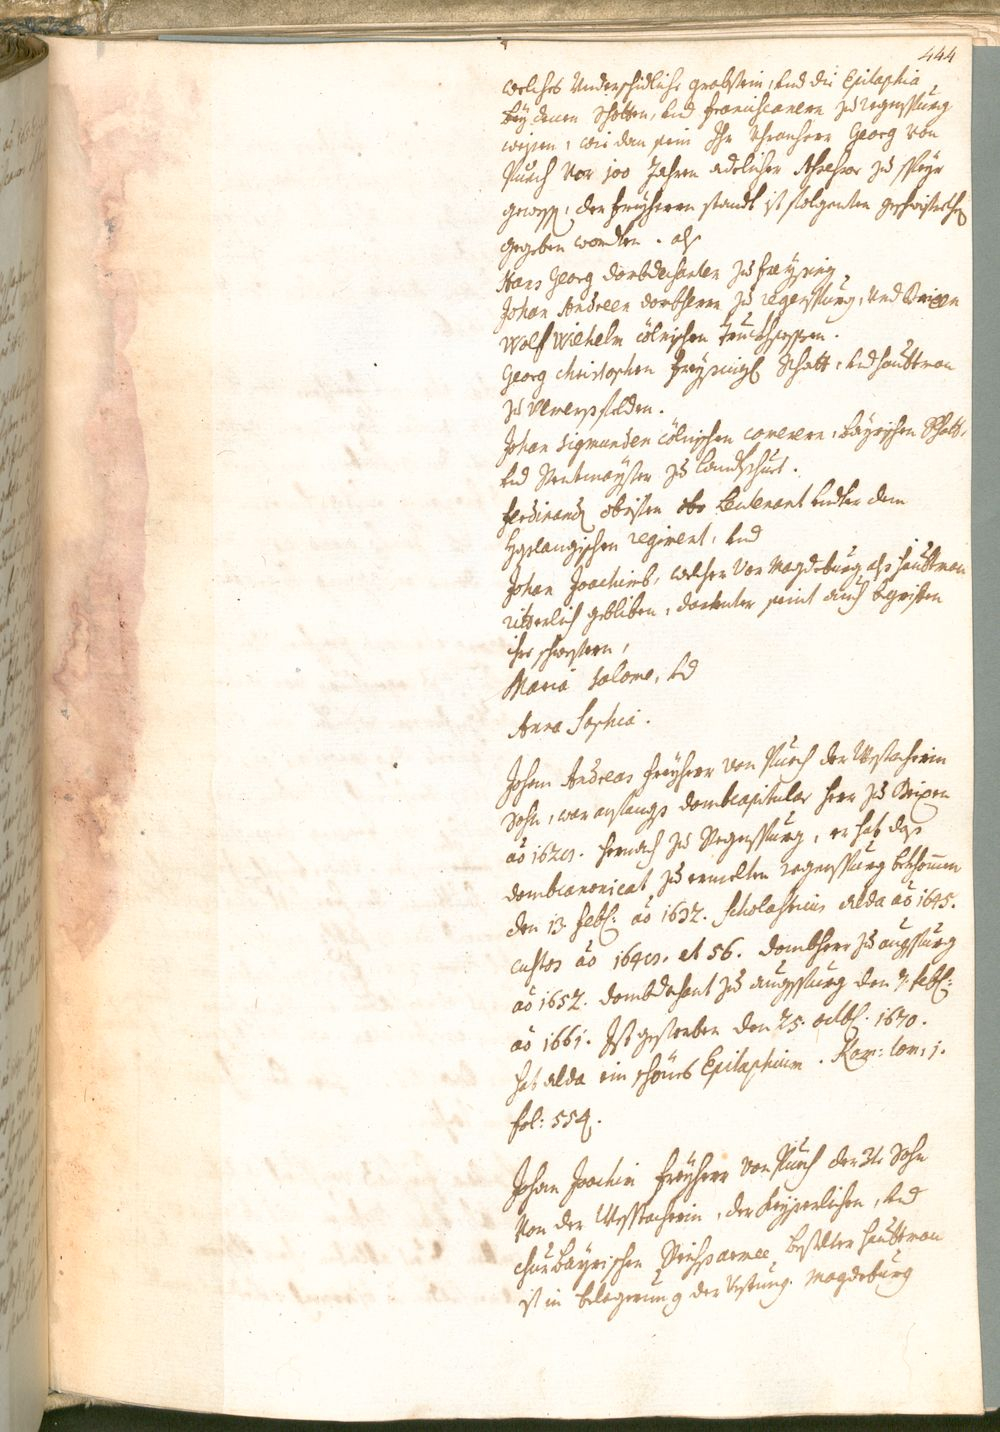 444
welches Underschidliche grabstein, und die Epitaphia
bey denen Schotten, und Franciscanern zu regenspurg
weisen, wie dan sein Ihr Uhranherr Georg Von
Puech Vor 100 Jahren adelicher zu Speyr
gewest, der freyherrn standt ist folgenten geschwistrethen
gegeben worden. als
Hans Georg dombdechanten zu freysing,
Johan Andreen dombherrn zu regenspurg, Und Brixen
Wolf Wilhelm cölnischen truchsessen.
Georg Christophen freysing: Rhatt, und haubtman
zu
Johan Sigmunden cölnischen camerern, bayrischen Rhatt,
und Rentmayster zu landtshuet.
Ferdinandt obristen leutenant under dem
regiment, und
Johan Joachimb, welcher Vor Magdeburg als haubtman
ritterlich gebliben, darunter seint auch begriffen
ihre schwestern,
Maria Salome, und
Anna Sophia.
Johann Andreas freyherr von Puech der Westacherin
Sohn, war anfangs dombcapitular herr zu Brixen
aõ 162 hernach zu Regenspurg, er hat das
dombcanonicat zu ermelten regenspurg bekhommen
den 13. feb: aõ 1632. Scholasticus alda aõ 1645.
custos aõ 164 et 56. dombherr zu augspurg
aõ 1652. dombdechant zu augspurg den 7. feb:
aõ 1661. Ist gestorben den 25. octb: 1670.
hat alda ein schönes Epitaphium. tom: 1.
fol: 554.
Johan Joachim freyherr von Puech der 3te Sohn
Von der Westacherin, der keyserlichen, und
churbayrischen Reichsarmee bestelter haubtman
ist in belagerung der Vestung Magdeburg